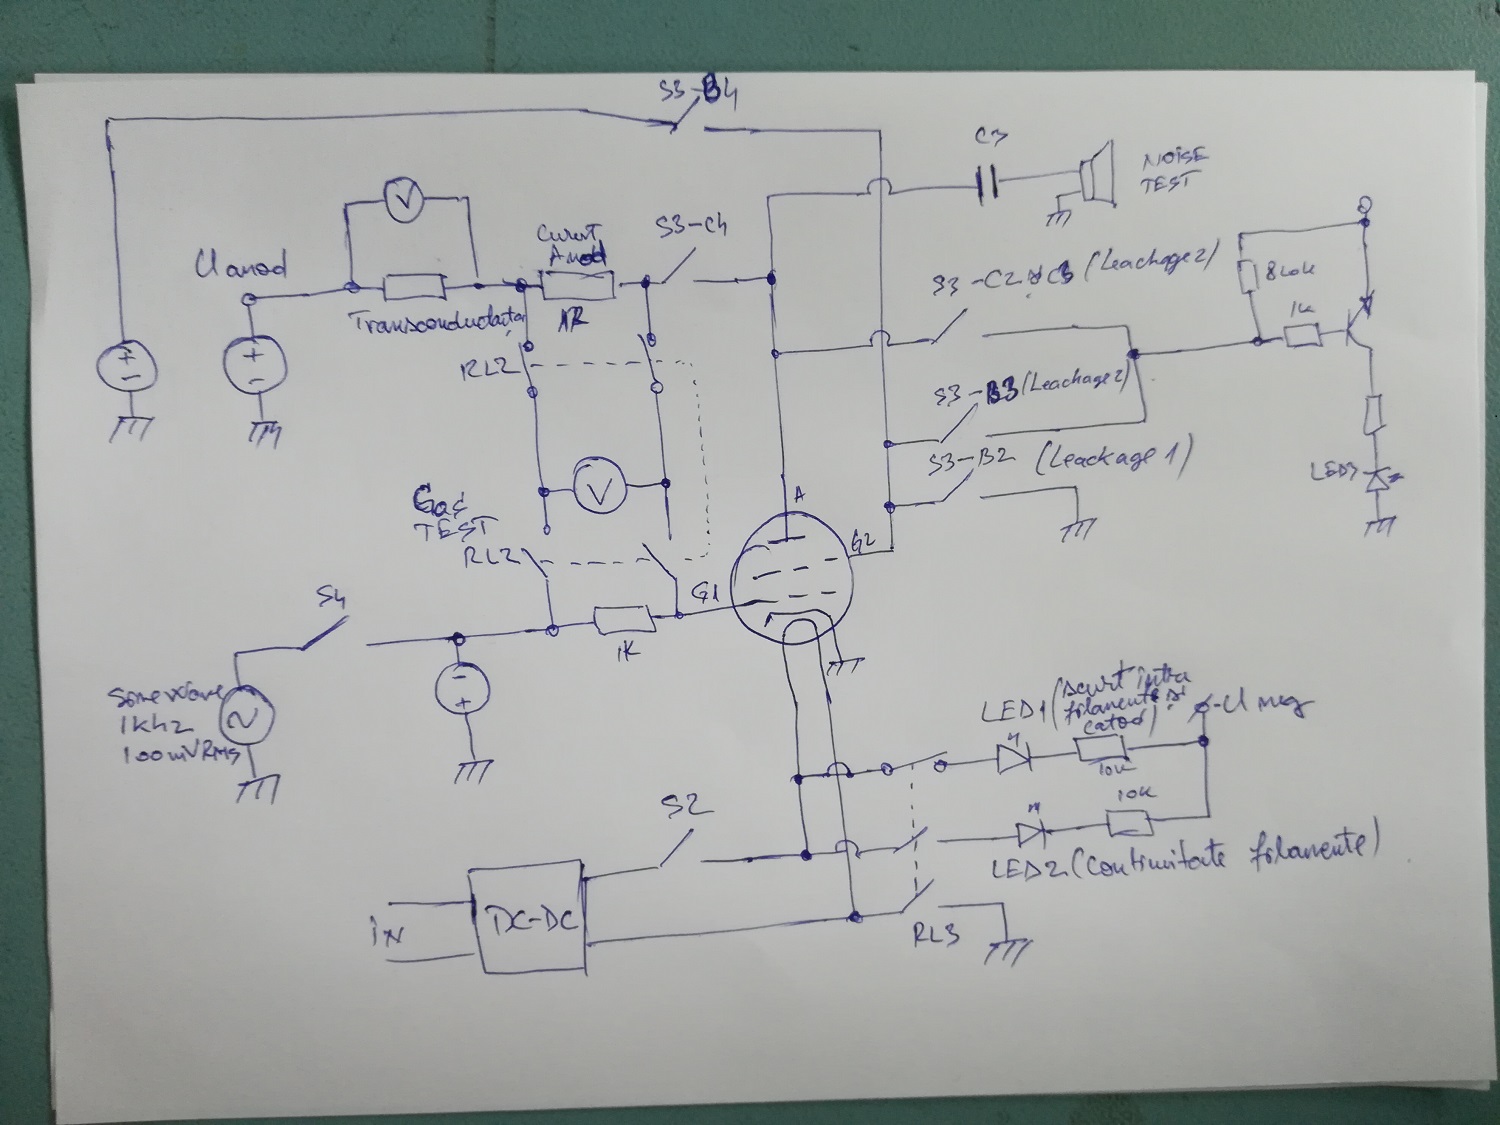 S3-B4
C3
NOISE
TEST
V
Curent
Anod
S3-C4
U anod
820k
1k
S3-C2 (Leachage2)
Transconductanta
1R
RL2
+
-
+
-
S3-B3 (Leachage2)
S3-B2 (Leackage 1)
LED3
V
A
Gas
TEST
RL2
G2
G1
S4
1K
-
+
Sinewave
1khz
100mVRMS
LED1 (scurt intre
filamente si
catod)
-U neg
10k
10k
S2
LED2 (Continuitate filamente)
IN
DC-DC
RL3